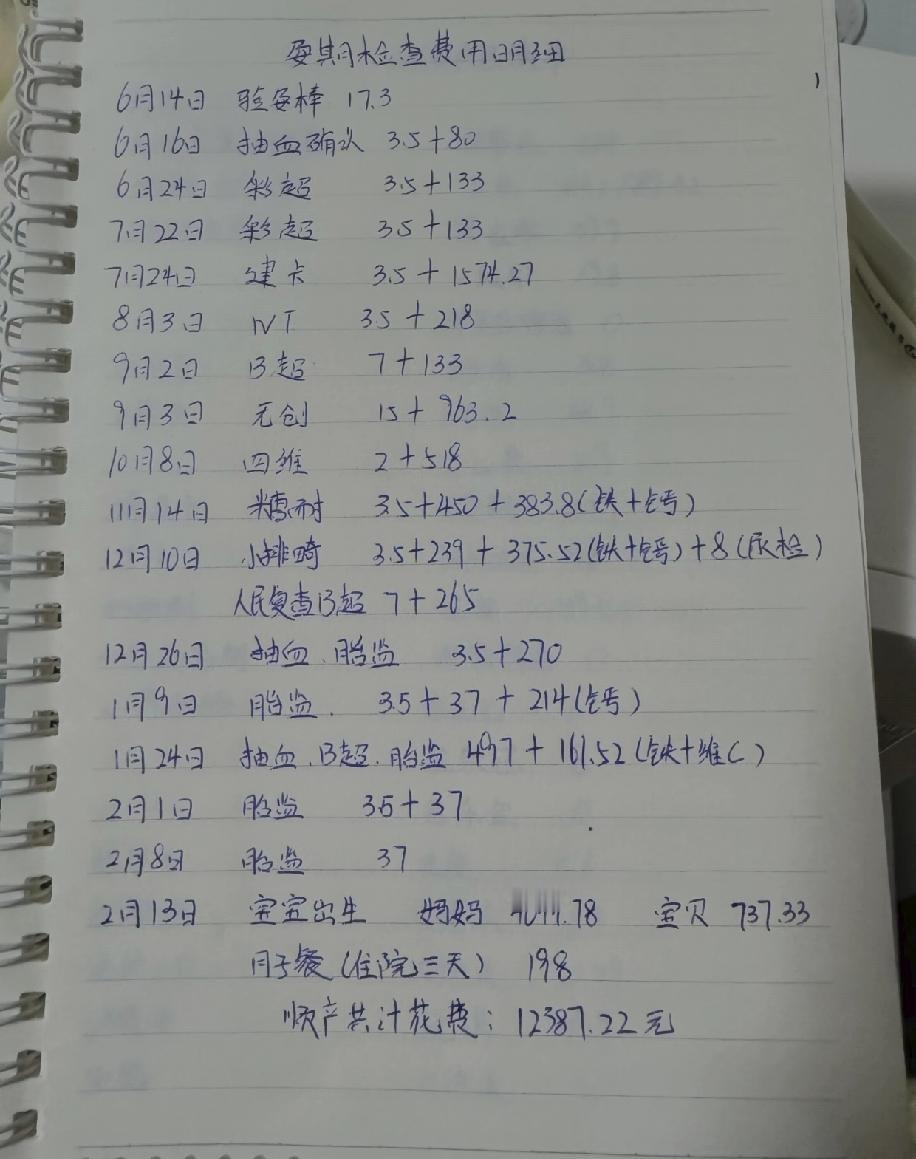 孕期检查费用明细
6月14日 验孕棒 17.3
6月16日 抽血确认 3.5+80
6月24日 彩超 3.5+133
7月22日 彩超 3.5+133
7月24日 建卡 3.5+1574.27
8月3日 NT 3.5+218
9月2日 B超 7+133
9月3日 无创 15+963.2
10月8日 四维 2+518
11月14日 糖耐 3.5+450+383.8(铁+钙)
12月10日 小排畸 3.5+239+375.52(铁+钙)+8(尿检)
人民复查B超 7+265
12月26日 抽血、胎监 3.5+270
1月9日 胎监 3.5+37+214(钙)
1月24日 抽血、B超、胎监 497+161.52(铁+维C)
2月1日 胎监 3.5+37
2月8日 胎监 37
2月13日 宝宝出生 妈妈 .78 宝贝 737.33
月子餐(住院三天) 198
顺产共计花费：12387.22元